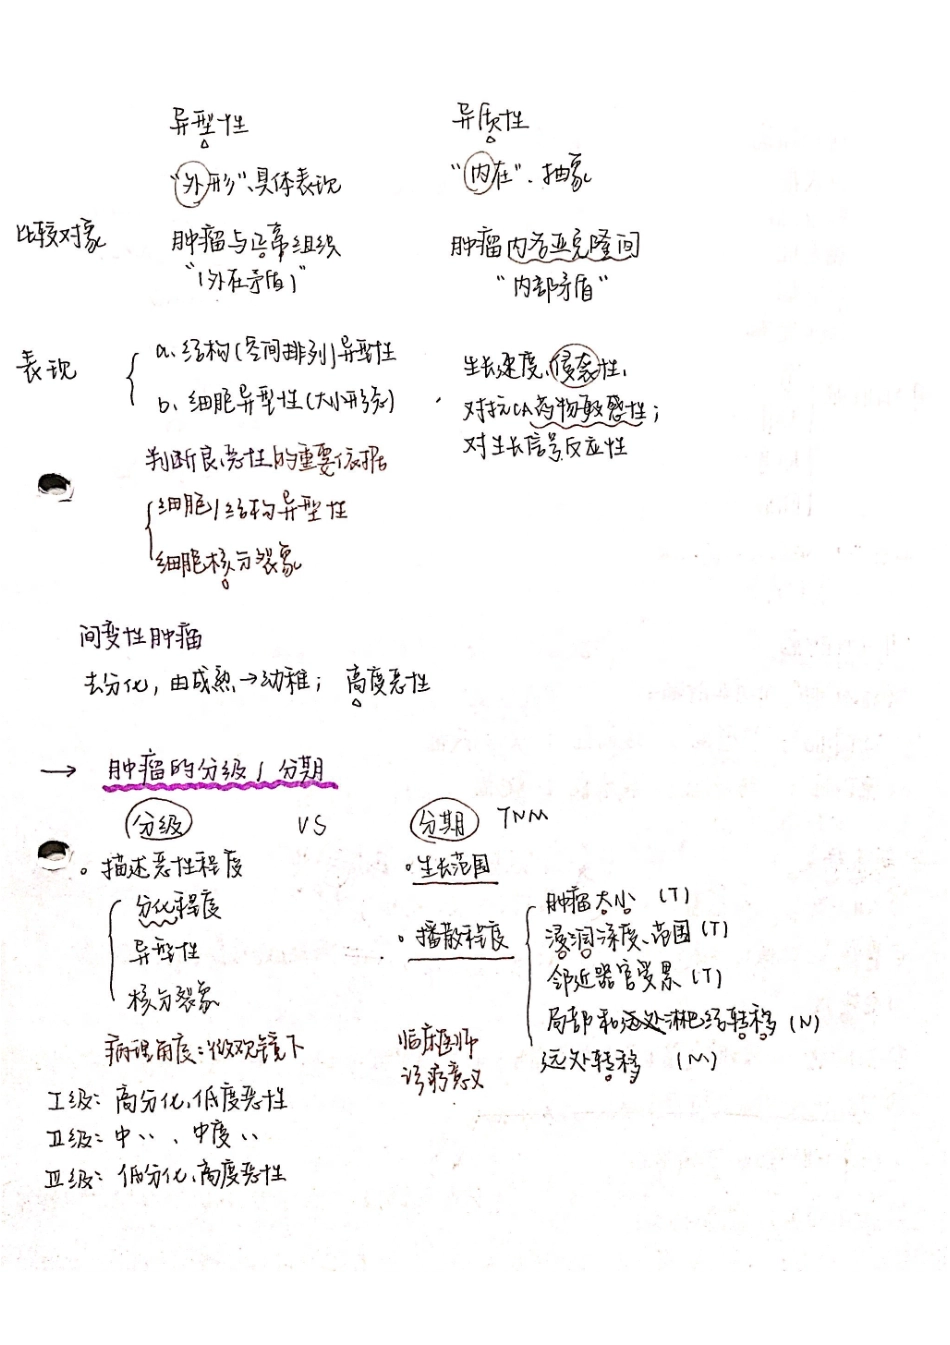 异型性 异质性
"外形"、具体表现 "内在"、抽象
比较对象 肿瘤与正常组织 肿瘤内各亚克隆间
"(外在矛盾)" "内部矛盾"
表现 a. 结构(空间排列)异型性 生长速度、侵袭性、
b. 细胞异型性(大小形态) 对抗CA药物敏感性;
判断良恶性的重要依据 对生长信号反应性
细胞/结构异型性
细胞核分裂象
间变性肿瘤
去分化,由成熟→幼稚; 高度恶性
→ 肿瘤的分级/分期
分级 VS 分期 TNM
。描述恶性程度 。生长范围
分化程度 肿瘤大小 (T)
异型性 。播散程度 浸润深度、范围(T)
核分裂象 邻近器官受累(T)
局部和远处淋巴结转移(N)
病理角度:微观镜下 临床医师 远处转移 (M)
诊疗意义
I级: 高分化,低度恶性
II级: 中〃、中度〃
III级: 低分化,高度恶性